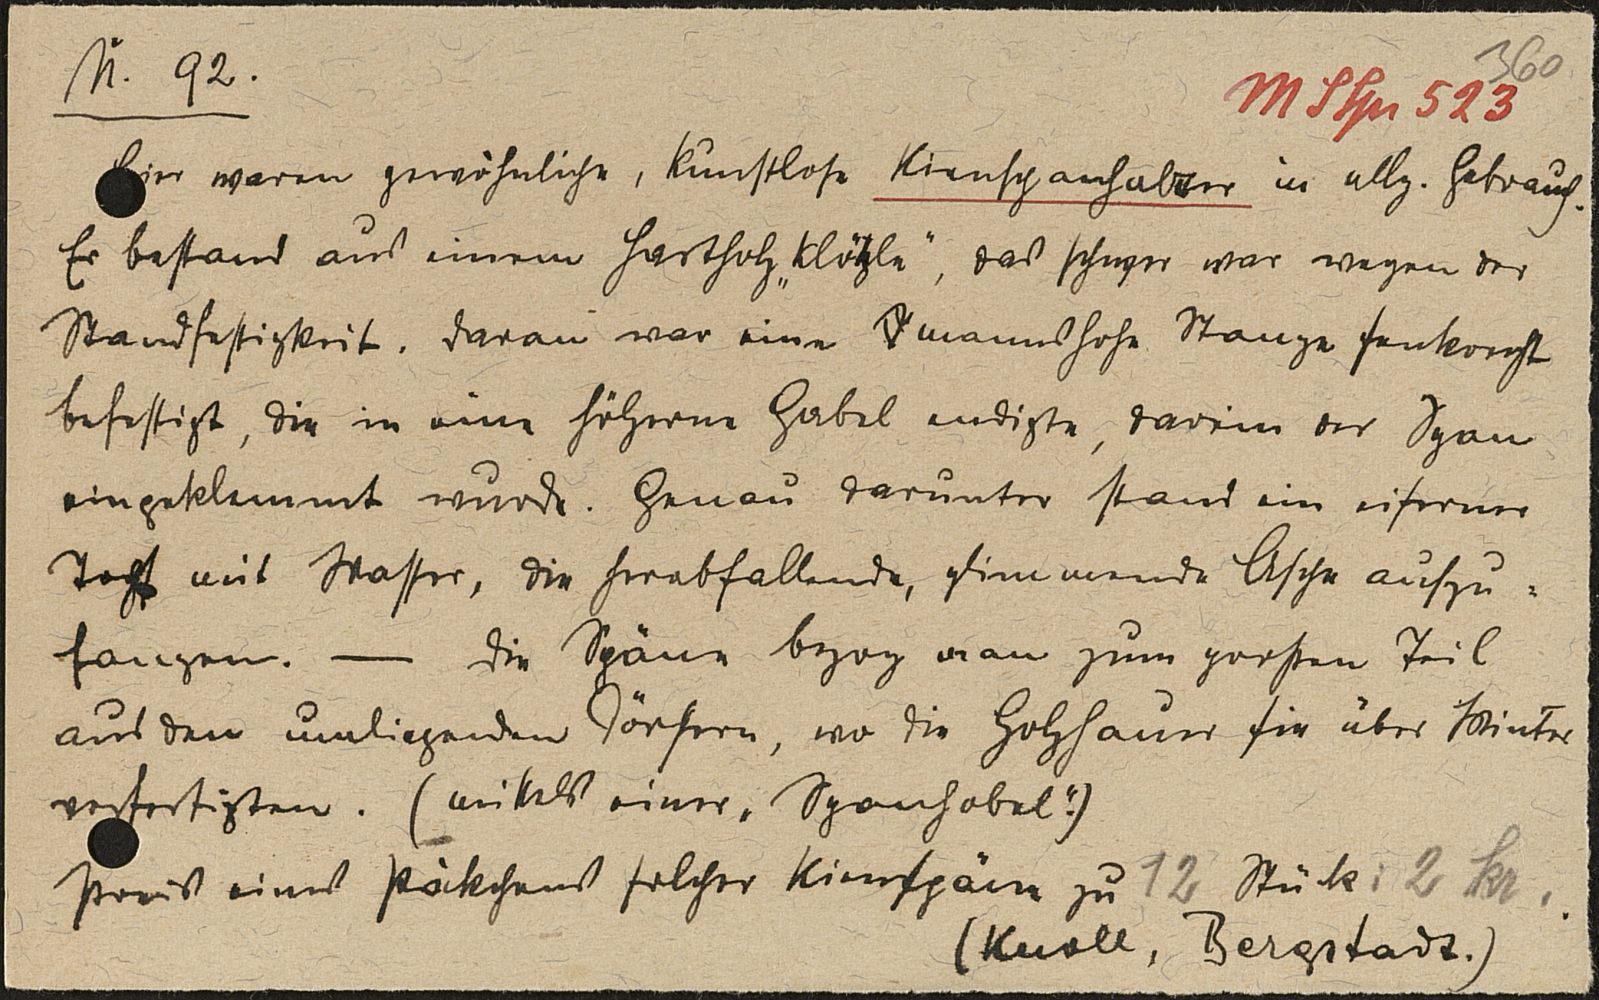 N. 92.
360
M Spr 523
Hier waren gewöhnliche, kunstlose Kienspanhalter in allg. Gebrauch.
Er bestand aus einem Hartholz „Klötzle", das schwer war wegen der
Standfestigkeit. Daran war eine mannshohe Stange senkrecht
befestigt, die in eine hölzerne Gabel endigte, darein der Span
eingeklemmt wurde. Genau darunter stand ein eiserner
Topf mit Wasser, die herabfallende, glimmende Asche aufzu=
fangen. — Die Späne bezog man zum grossen Teil
aus den umliegenden Dörfern, wo die Holzhauer sie über Winter
verfertigten. (mittels einer „Spanhobel".)
Preis eines Päckchens solcher Kienspäne zu 12 Stück: 2 kr.
(Knoll, Bergstadt.)